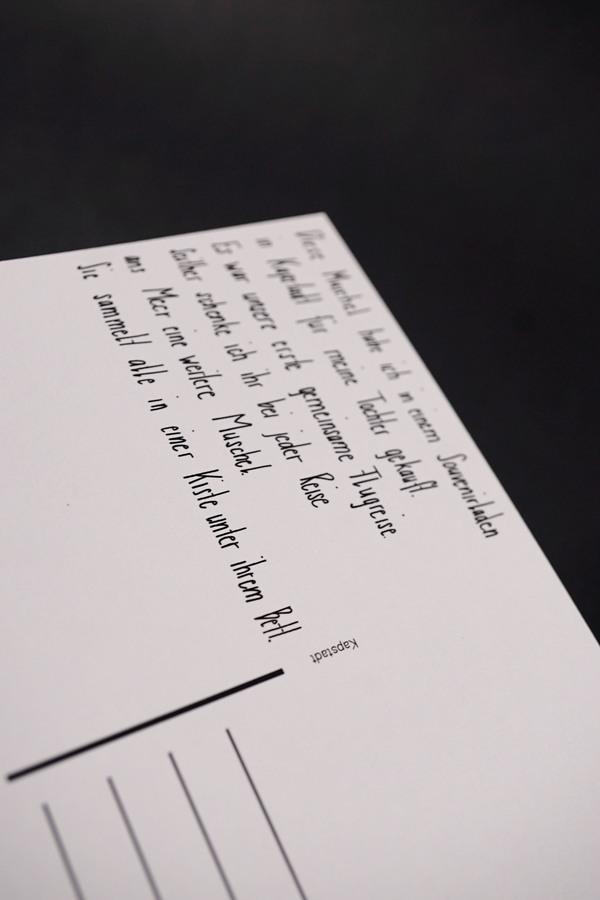 Diese Muschel habe ich in einem Souvenirladen
in Kapstadt für meine Tochter gekauft.
Es war unsere erste gemeinsame Flugreise.
Seither schenke ich ihr bei jeder Reise
ans Meer eine weitere Muschel.
Sie sammelt alle in einer Kiste unter ihrem Bett.
Kapstadt